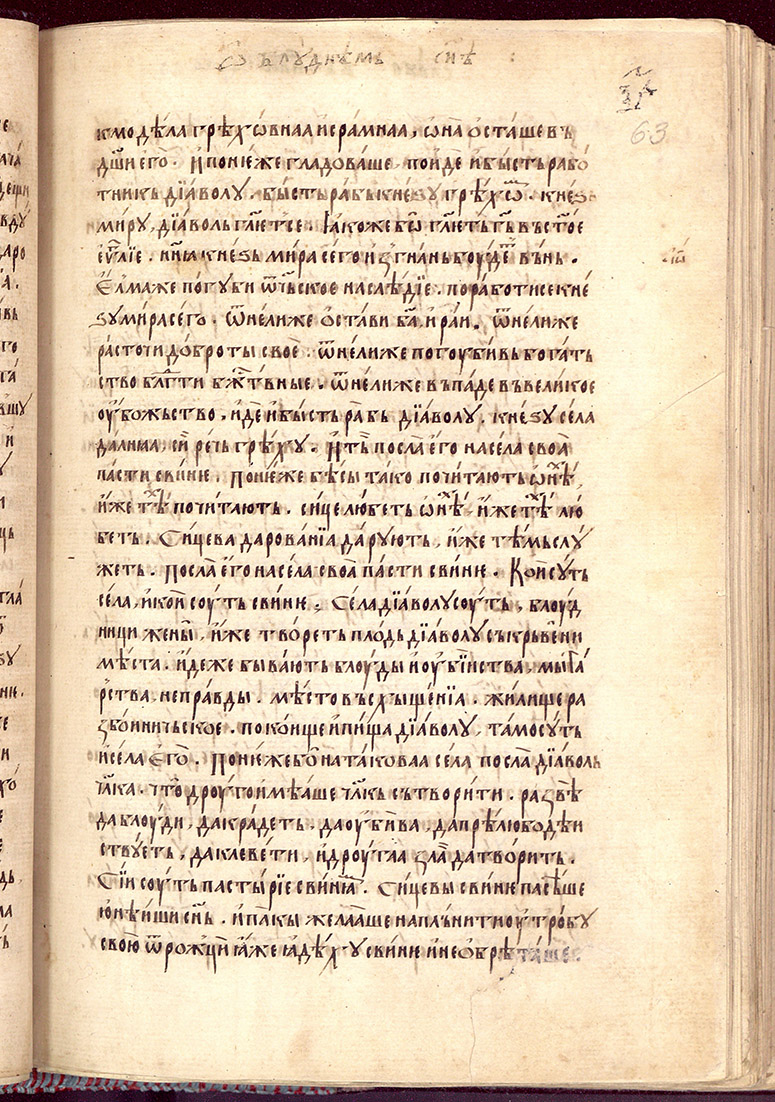 Ѡ блуднѣмь сн҃ѣ :
63
кмо дѣ́ла грѣхо́внаа и҆ сра́мнаа, ѡ҆на̀ ѡ҆ста́ше въ
дш҃и є҆го̀. И҆ поне́же гладова́ше. по́иде и҆ бы́сть рабо́
тникъ дїа́волу. бы́сть ра́бь кне́ѕу грѣхѡ́м. кне́ѕ
ми́ру, дїа́воль гл҃ет се. ꙗ҆́коже бо̀ гл҃еть гь҃ въ ст҃ое
еѵ҃лїе. нн҃ꙗ кне́ѕь ми́ра сего̀ и҆згна́нь боу́деть вь́нь.
Є҆лма́же погу́би ѿч҃ьское наслѣ́дїе. порабо́ти се кне́
ѕу ми́ра сего̀. ѿне́лиже ѡ҆ста́ви ба҃ и҆ ра́и. ѿне́лиже
расточѝ добро́ты своѐ. ѿне́лиже погоу́би вь бога́ть
ство бл҃гти бж҃тв́ные. ѿне́лиже въпа́де въ вели́кое
оу҆бо́жьство, и҆́де и҆ бы́сть ра́бь дїа́волу. кне́ѕу села̀
да́лнаа, си́ речь грѣ́ху. И҆ тъ̀ посла̀ є҆го̀ на се́ла своа̀
па́сти сви́ние. Поне́же бѣ́сы та́ко почита́ють ѡ҆нѣ́х
и҆́же тѣ́х почита́ють. си́це лю́беть ѡ҆нѣ́х, и҆́же тѣ́х лю́
беть. Си́цева дарова́нїа да́рують, и҆́же тѣ́мь слу́
жеть. Посла̀ є҆го̀ на се́ла своа̀ па́сти сви́ние. Ко́и су́ть
се́ла, и҆ ко́и соу́ть сви́ние; Се́ла дїа́волу соу́ть, блоу́д
ници жены̀. и҆́же тво́реть пло́дь дїа́волу съкрьве́ни
мѣ́ста. и҆де́же быва́ють блоу́ды и҆ оу҆би́иства, мы́та
рства, непра́вды. мѣ́сто въсхыще́нїа. жили́ще ра
збо́иничьское. поко́ище и҆ пи́ща дїа́волу, та́мо су́ть
и҆ се́ла є҆го̀. Поне́же бо̀ на та́коваа се́ла посла̀ дїа́воль
чл҃ка. что̀ дроуго́и и҆мѣ́аше чл҃кь сътвори́ти. ра́звѣ
да блоу́ди, да кра́деть, да оу҆би́ва, да прѣлюбодѣ́и
ствуеть, да клеве́ти, и҆ дроу́гаа зла̀ да тво́рить.
Сїи соу́ть пасты́рїе сви́нїам. Си́цевы сви́ние пасѣ́ше
ю҆нѣ́иши сн҃ь. и҆ па́кы жела́аше напльни́ти оу҆тро́бу
свою̀ ѿ ро́жць ꙗ҆́же ꙗ҆дѣ́ху сви́ние и҆ не ѡ҆брѣта́ше.